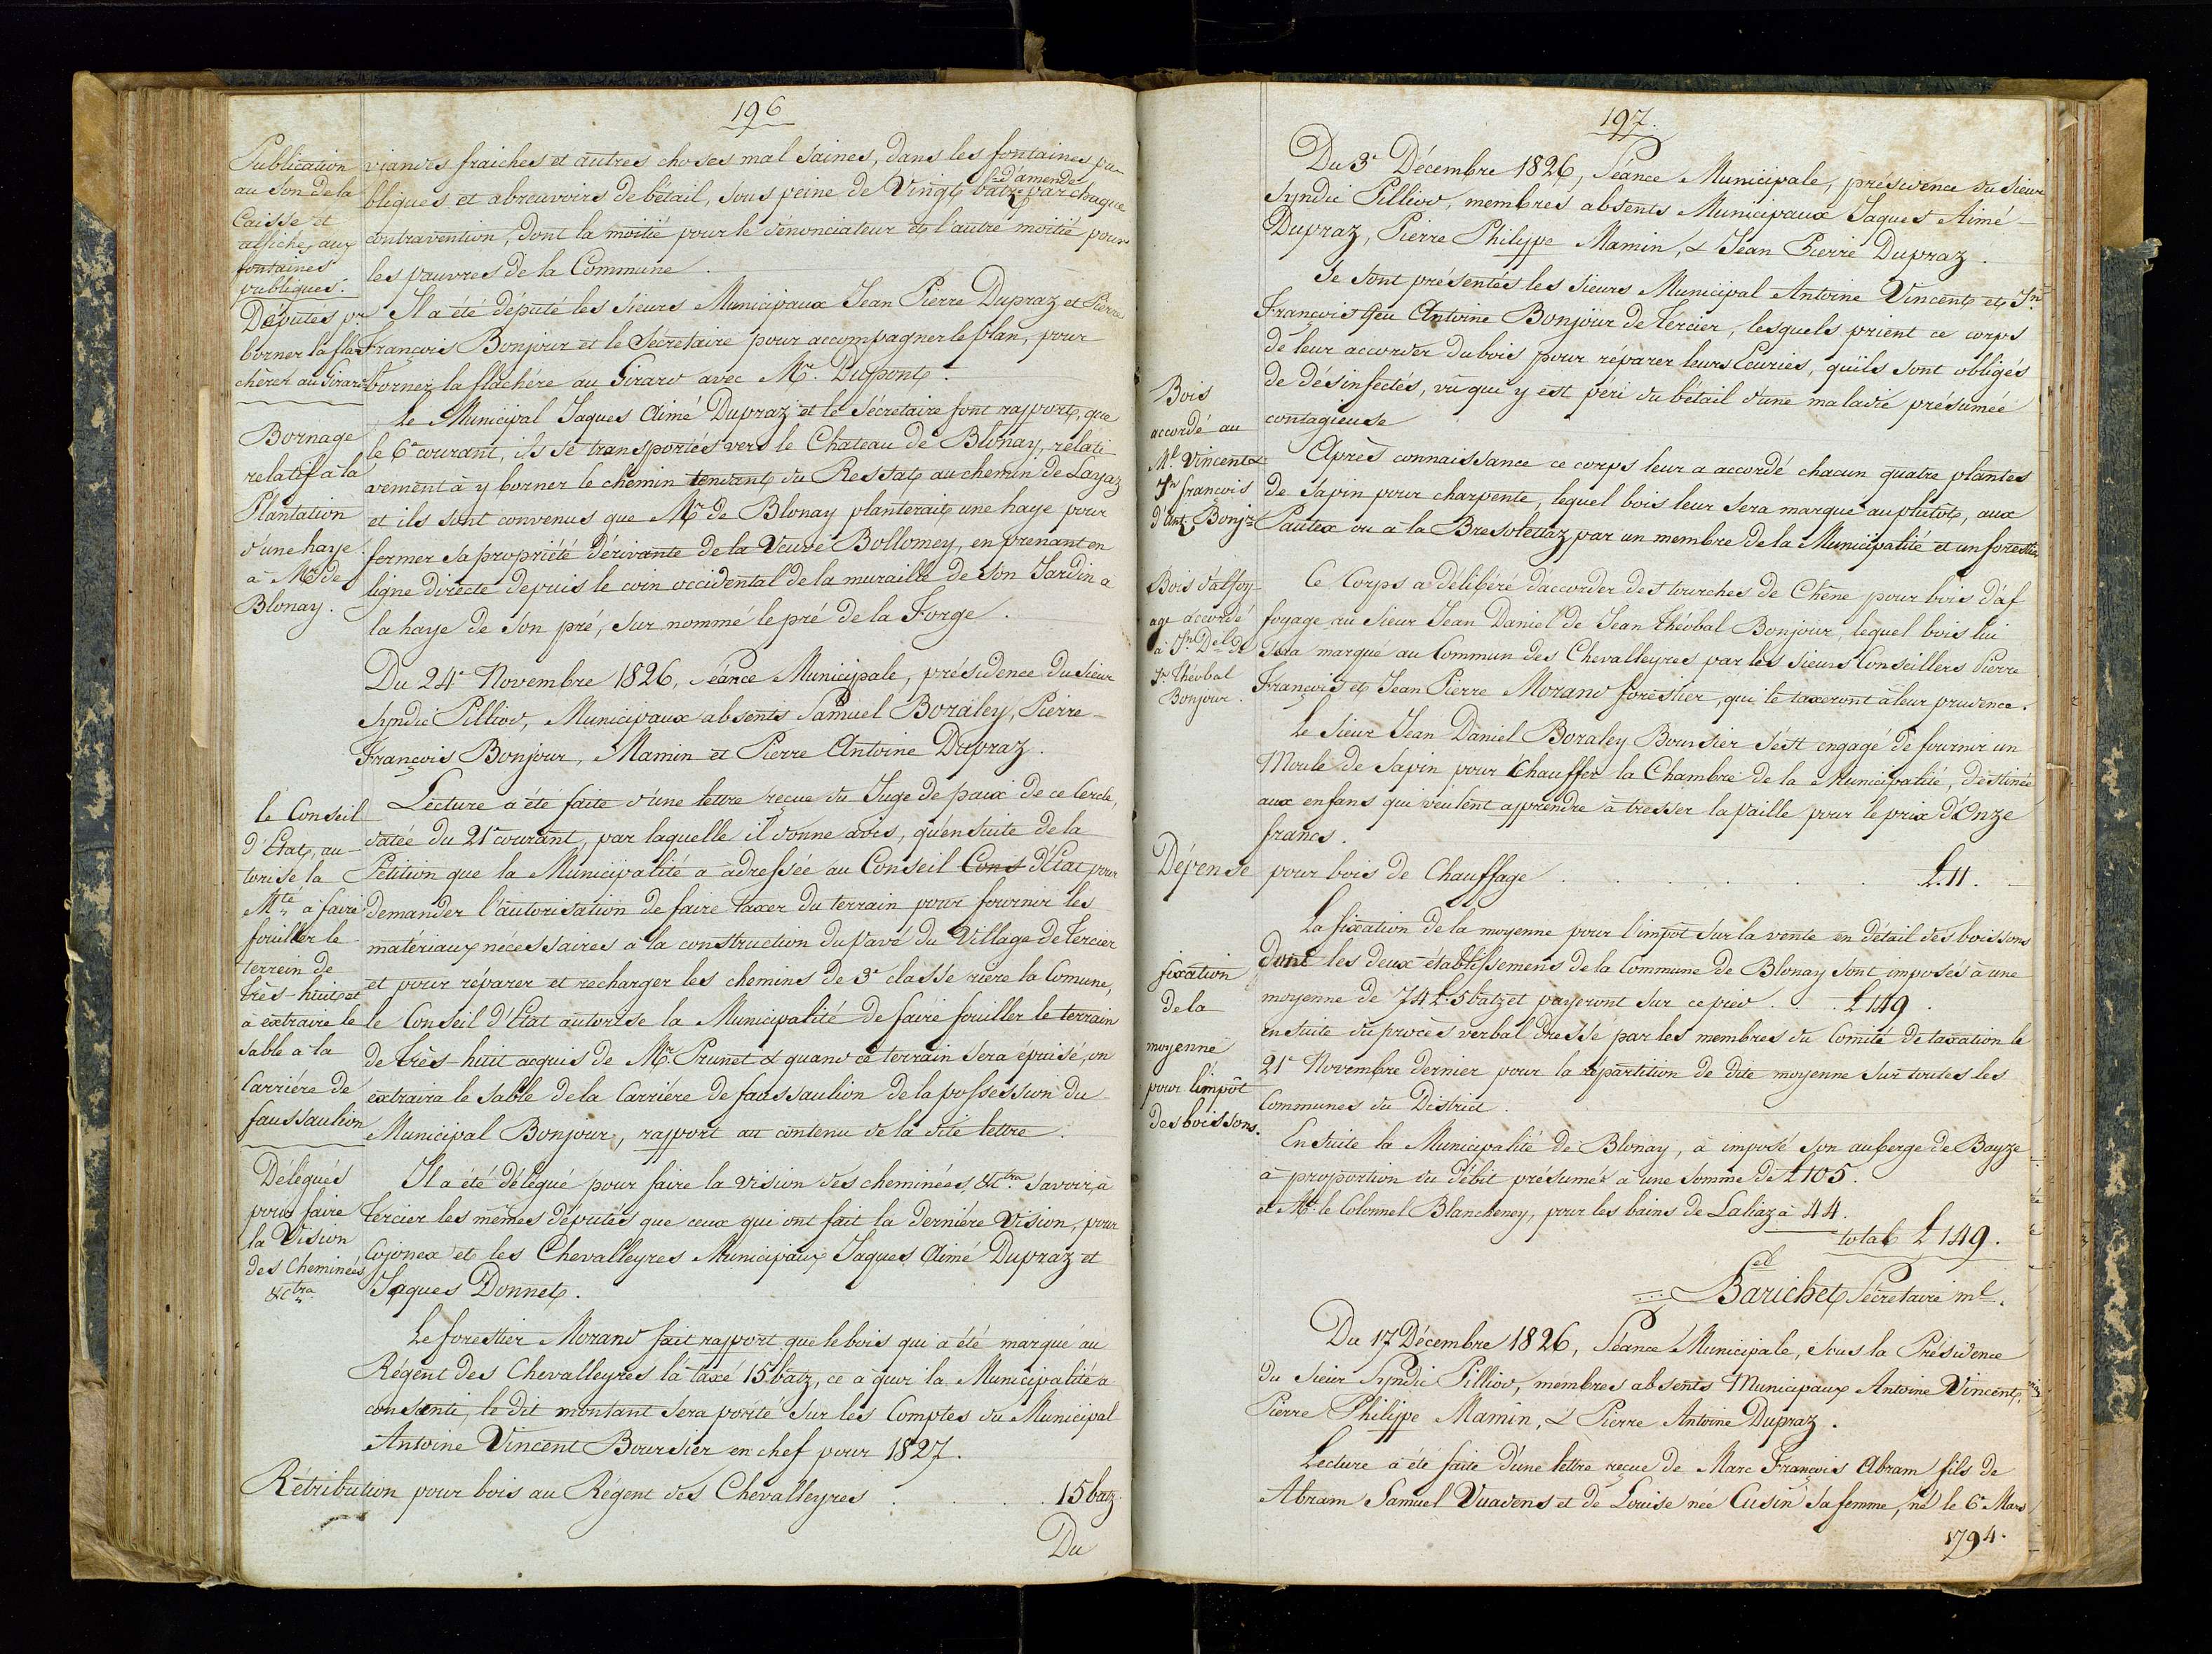 196
Publication
au Son de la
Caisse et
affiché aux
fontaines
publiques.
viandes fraiches et autres choses mal saines, dans les fontaines pu-
d'amende
bliques et abreuvoirs de bétail, sous peine de Vingt batz par chaque
contravention, dont la moitié pour le dénonciateur et l'autre moitié pour
les pauvres de la Commune.
Députés pr
borner la fla-
chérer au Girard
Il a été député les Sieurs Municipaux Jean Pierre Dupraz et Pierre
François Bonjour et le Sécretaire pour accompagner le plan, pour
borner la flachére au Girard avec Mr. Dupont.
Bornage
relatif à la
Plantation
d'une haye
à Mr de
Blonay.
Le Municipal Jaques Aimé Dupraz et le Sécretaire font rapport, que
le 6e courant, ils se transportés vers le Chateau de Blonay, relati
vement à y borner le chemin tendant du Restat au chemin de Layaz
et ils sont convenus que Mr de Blonay planterait une haye pour
fermer sa propriété dérivante de la Veuve Bollomey, en prenant en
ligne directe depuis le coin occidental de la muraille de son Jardin a
la haye de son pré, sur nommé le pré de la Forge.
Du 24e Novembre 1826, Séance Municipale, présidence du Sieur
Syndic Pilliod, Municipaux absents Samuel Boraley, Pierre
François Bonjour, Mamin et Pierre Antoine Dupraz.
le Conseil
d'Etat, au-
torise la
Mté à faire
fouiller le
terrein de
très-huit et
à extraire le
sable à la
Carriére de
faussaulion
Lecture a été faite d'une lettre reçue du Juge de paix de ce Cercle,
datée du 21e courant, par laquelle il donne avis, qu'ensuite de la
Pétition que la Municipalité a adressée au Conseil Cons d'Etat pour
demander l'autorisation de faire taxer du terrain pour fournir les
matériaux nécessaires à la construction du pavé du Village de Tercier
et pour réparer et recharger les chemins de 3e classe rière la Comune,
le Conseil d'Etat autorise la Municipalité de faire fouiller le terrain
de très-huit acquis de Mr. Prunet & quand ce terrain sera épuisé, on
extraira le sable de la Carriére de faussaulion de la possession du
Municipal Bonjour, rapport au contenu de la dite lettre.
Délégués
pour faire
la Vision
des Cheminées
&ctra
Il a été délégué pour faire la vision des cheminées &ctra savoir, à
Tercier les mêmes députés que ceux qui ont fait la derniére Vision, pour
Cojonex et les Chevalleyres Municipaux Jaques Aimé Dupraz et
Jaques Donnet.
Le forestier Morand fait rapport que le bois qui a été marqué au
Régent des Chevalleyres l'a taxé 15 batz, ce à quoi la Municipalité a
consenti, le dit montant sera porté sur les Comptes du Municipal
Antoine Vincent Boursier en chef pour 1827.
Rétribution pour bois au Régent des Chevalleyres . . . . 15 batz.
Du
197.
Du 3e Décembre 1826, Séance Municipale, présidence du Sieur
Syndic Pilliod, membres absents Municipaux Jaques Aimé
Dupraz, Pierre Philippe Mamin, & Jean Pierre Dupraz.
Bois
accordé au
Ml. Vincent &
Jn françois
d'Ant. Bonjr
Se sont présentés les Sieurs Municipal Antoine Vincent et Jn
François feu Antoine Bonjour de Tercier, lesquels prient ce corps
de leur accorder du bois pour réparer leurs Ecuries, qu'ils sont obligés
de désinfectés, vu que y est péri du bétail d'une maladie présumée
contagieuse
Après connaissance ce corps leur a accordé chacun quatre plantes
de Sapin pour charpente, lequel bois leur sera marqué au plutôt, aux
Pautex ou à la Bresolettaz par un membre de la Municipalité et un forestier
Bois d'affoy-
age accordé
à Jn Del de
Jn Théobal
Bonjour.
Ce Corps a délibéré d'accorder des tourches de Chêne pour bois d'af
foyage au Sieur Jean Daniel de Jean Théobal Bonjour, lequel bois lui
sera marqué au Commun des Chevalleyres par les Sieurs Conseillers Pierre
François et Jean Pierre Morand forestier, qui le taxeront à leur prudence.
Le Sieur Jean Daniel Boraley Boursier s'est engagé de fournir un
Moule de Sapin pour Chauffer la Chambre de la Municipalité, destinée
aux enfans qui veulent apprendre à tresser la paille pour le prix d'Onze
francs.
Dépense pour bois de Chauffage . . . . . L. 11.
fixation
de la
moyenne
pour l'impôt
des boissons.
La fixation de la moyenne pour l'impôt sur la vente en détail des boissons
dont les deux établissemens de la Commune de Blonay sont imposés à une
moyenne de 74 L. 5 batz et payeront sur ce pied . . L 149.
ensuite du procès verbal dressé par les membres du Comité de taxation le
21e Novembre dernier pour la répartition de dite moyenne sur toutes les
Communes du District.
Ensuite la Municipalité de Blonay, a imposé son auberge de Bayze
à proportion du débit présumés à une somme de L 105.
& Mr. le Colonnel Blancheney, pour les bains de Laliaz à 44.
total L 149.
Sel
Barichet Sécretaire ml.
Du 17 Décembre 1826, Séance Municipale, sous la Présidence
du Sieur Syndic Pilliod, membres absents Municipaux Antoine Vincent,
Pierre Philippe Mamin, & Pierre Antoine Dupraz.
Lecture à été faite d'une lettre reçue de Marc François Abram fils de
Abram Samuel Vuadens et de Louise née Cusin sa femme, né le 6e Mars
1794.